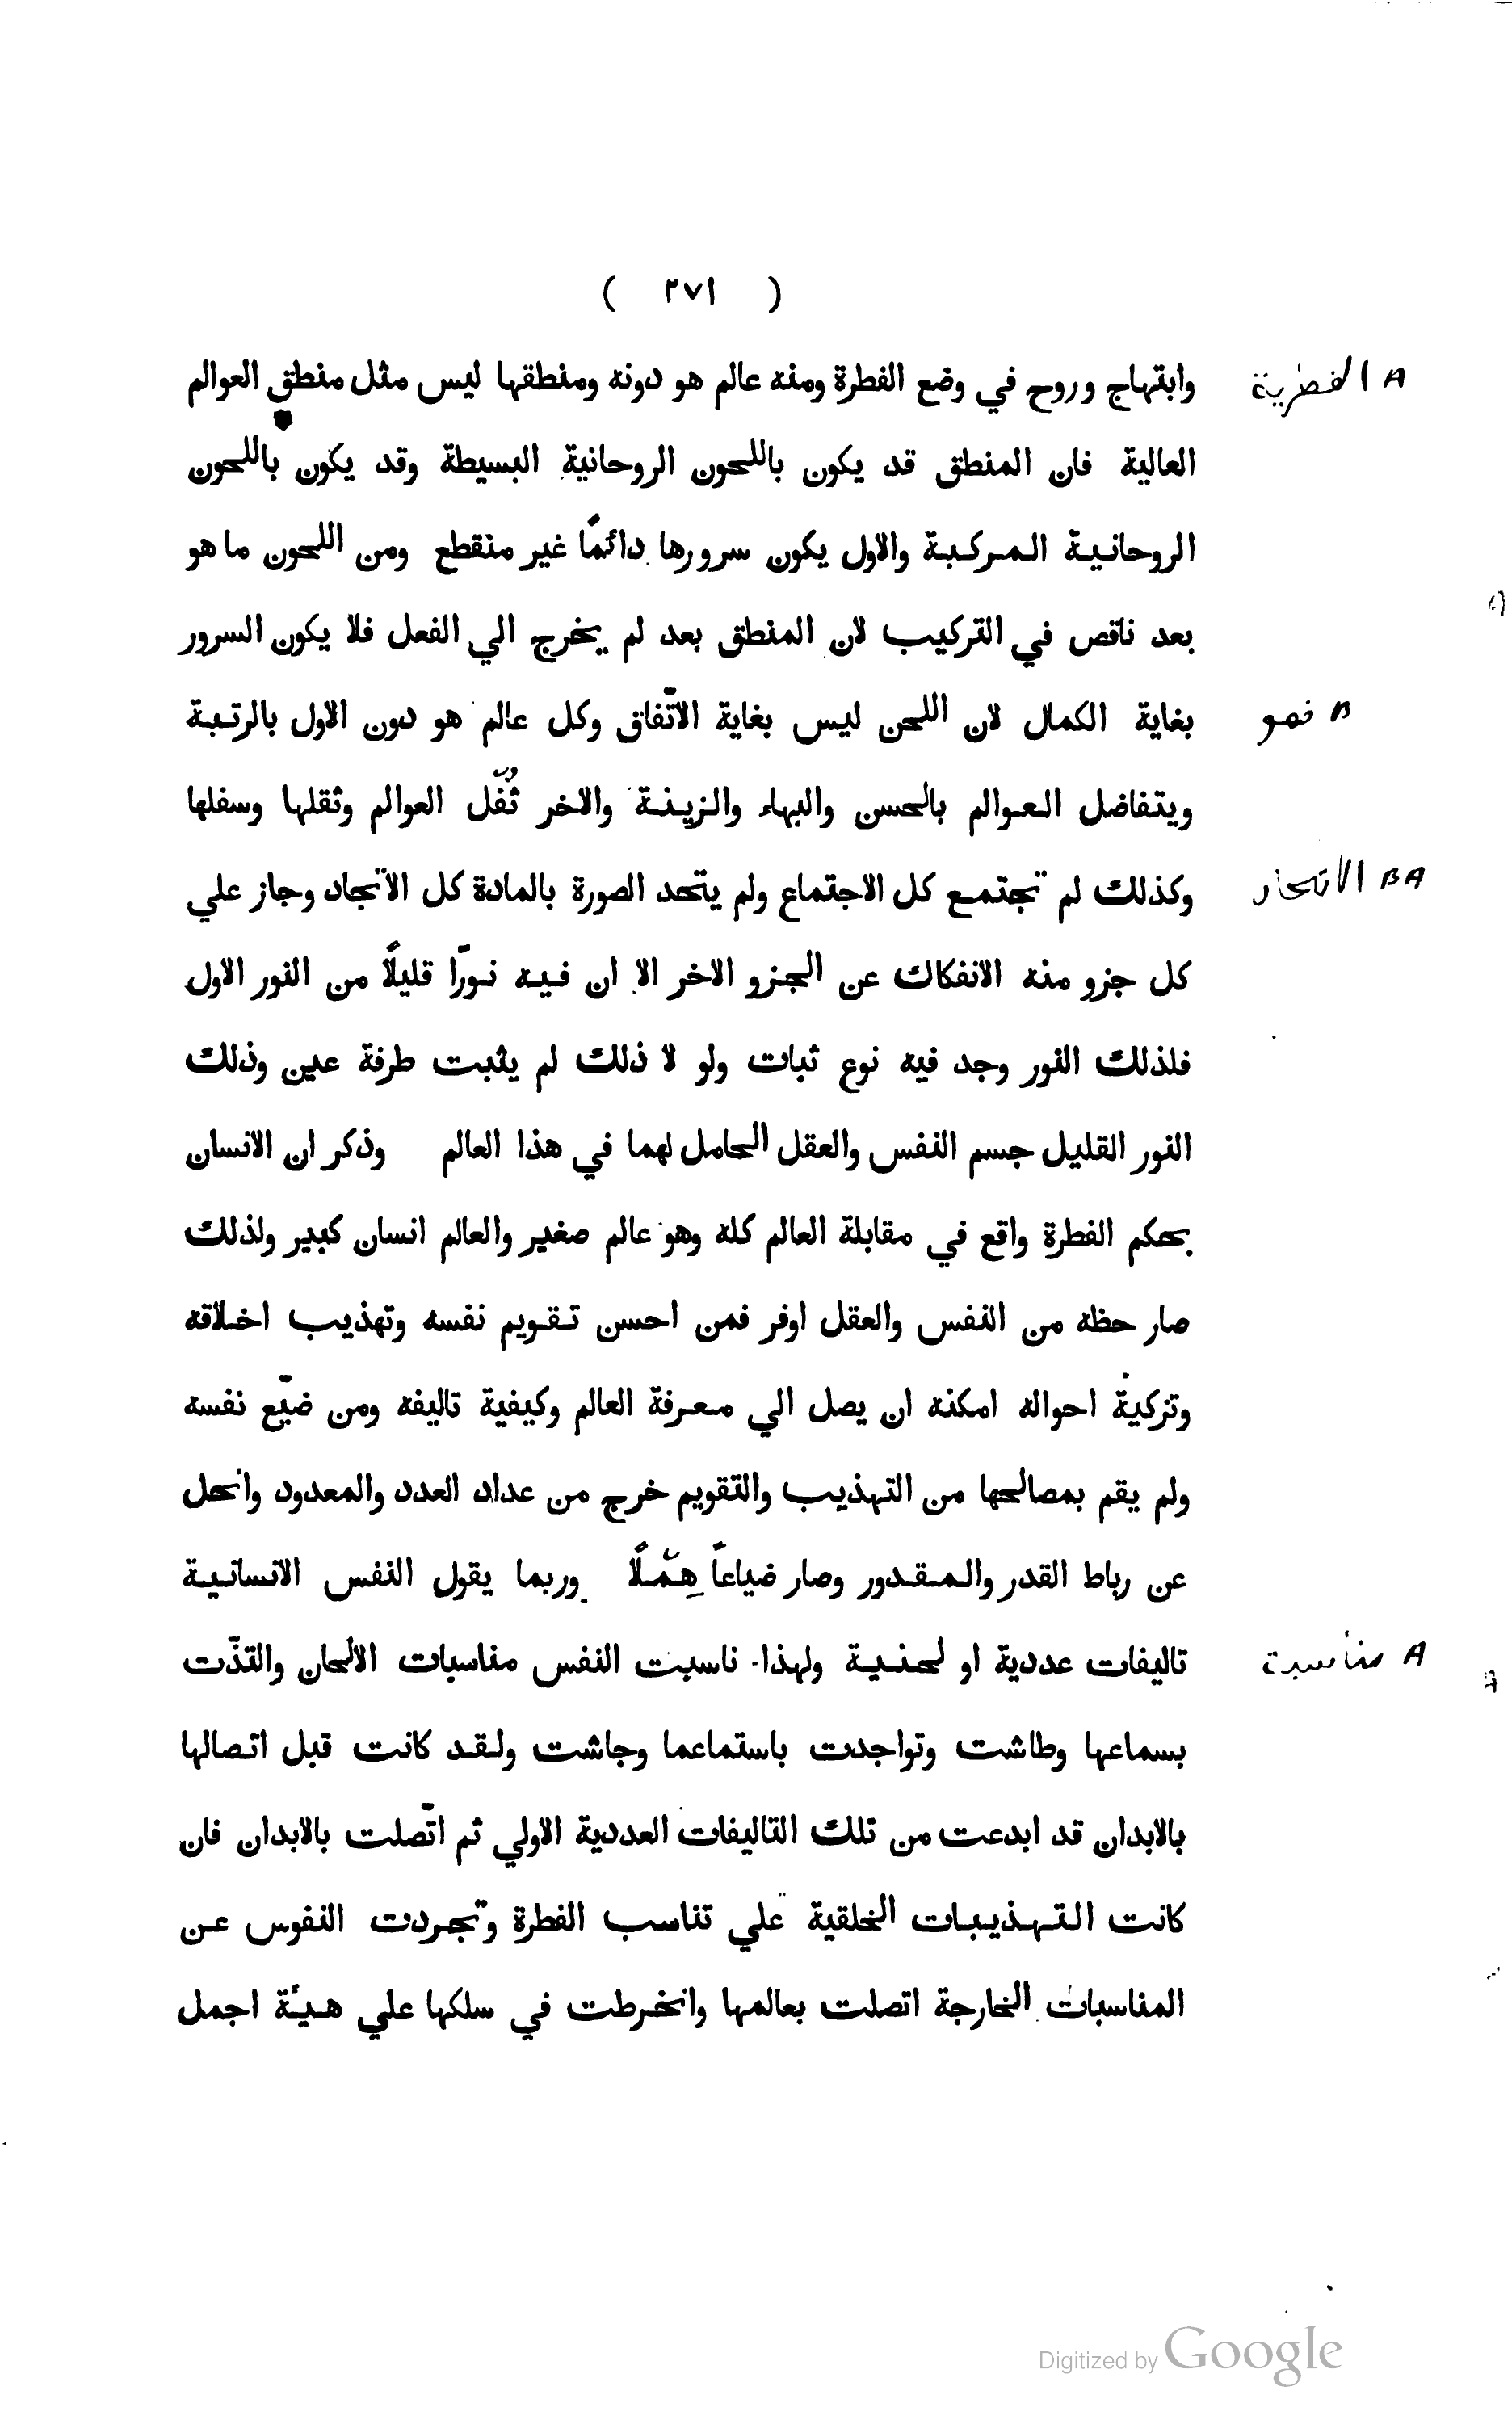 ( ٢٧١ )
وابتهاج وروح في وضع الفطرة ومنه عالم هو دونه ومنطقها ليس مثل منطق العوالم
A الفطرية
العالية فان المنطق قد يكون باللحون الروحانية البسيطة وقد يكون باللحون
الروحانية المركبة والاول يكون سرورها دائمًا غير منقطع ومن اللحون ما هو
بعد ناقص في التركيب لان المنطق بعد لم يخرج الي الفعل فلا يكون السرور
بغاية الكمال لان اللحن ليس بغاية الاتّفاق وكل عالم هو دون الاول بالرتبة
B فهو
ويتفاضل العوالم بالحسن والبهاء والزينة والاخر ثُفّل العوالم وثقلها وسفلها
وكذلك لم تجتمع كل الاجتماع ولم يتحد الصورة بالمادة كل الاتجاد وجاز علي
BA الاتحاد
كل جزو منه الانفكاك عن الجزو الاخر الا ان فيه نورًا قليلًا من النور الاول
فلذلك النور وجد فيه نوع ثبات ولو لا ذلك لم يثبت طرفة عين وذلك
النور القليل جسم النفس والعقل الحامل لهما في هذا العالم وذكر ان الانسان
بحكم الفطرة واقع في مقابلة العالم كله وهو عالم صغير والعالم انسان كبير ولذلك
صار حظه من النفس والعقل اوفر فمن احسن تقويم نفسه وتهذيب اخلاقه
وتزكية احواله امكنه ان يصل الي معرفة العالم وكيفية تاليفه ومن ضيّع نفسه
ولم يقم بمصالحها من التهذيب والتقويم خرج من عداد العدد والمعدود وانحل
عن رباط القدر والمقدور وصار ضياعاً هِمّلًا وربما يقول النفس الانسانية
تاليفات عددية او لحنية ولهذا ناسبت النفس مناسبات الالحان والتذّت
A مناسبة
بسماعها وطاشت وتواجدت باستماعما وجاشت ولقد كانت قبل اتصالها
بالابدان قد ابدعت من تلك التاليفات العددية الاولي ثم اتّصلت بالابدان فان
كانت التهذيبات الخلقية علي تناسب الفطرة وتجردت النفوس عن
المناسبات الخارجة اتصلت بعالمها وانخرطت في سلكها علي هيئة اجمل
Digitized by Google